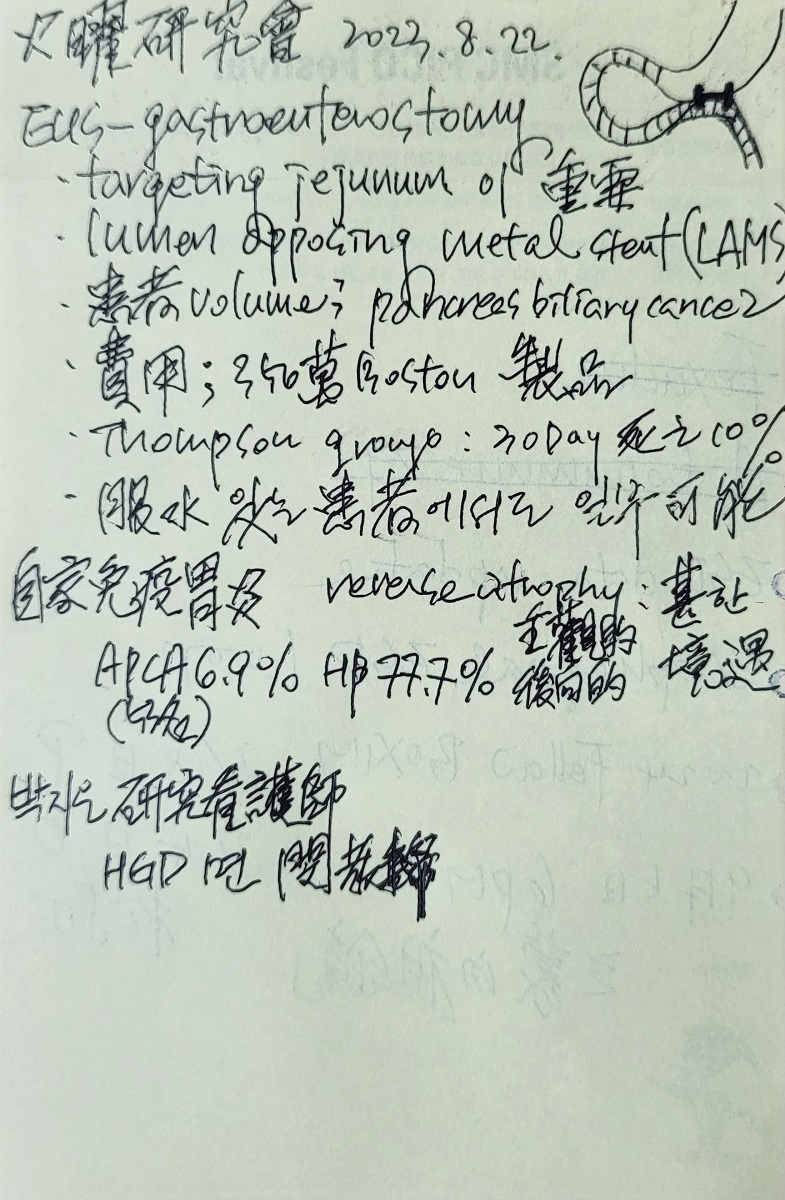 火曜硏究會 2023.8.22.
EUS-gastroenterostomy
· targeting jejunum 이 重要
· lumen apposing metal stent (LAMS)
· 患者 volume; pancreas biliary cancer
· 費用; 350萬 Boston 製品
· Thompson group: 30Day 死亡 10%
· 腹水 있는 患者에서도 일부 可能
自家免疫胃炎 reverse atrophy: 甚한
主觀的 境遇
APCA 6.9% HP 77.7% 後向的
박지은 硏究看護師
HGD 면